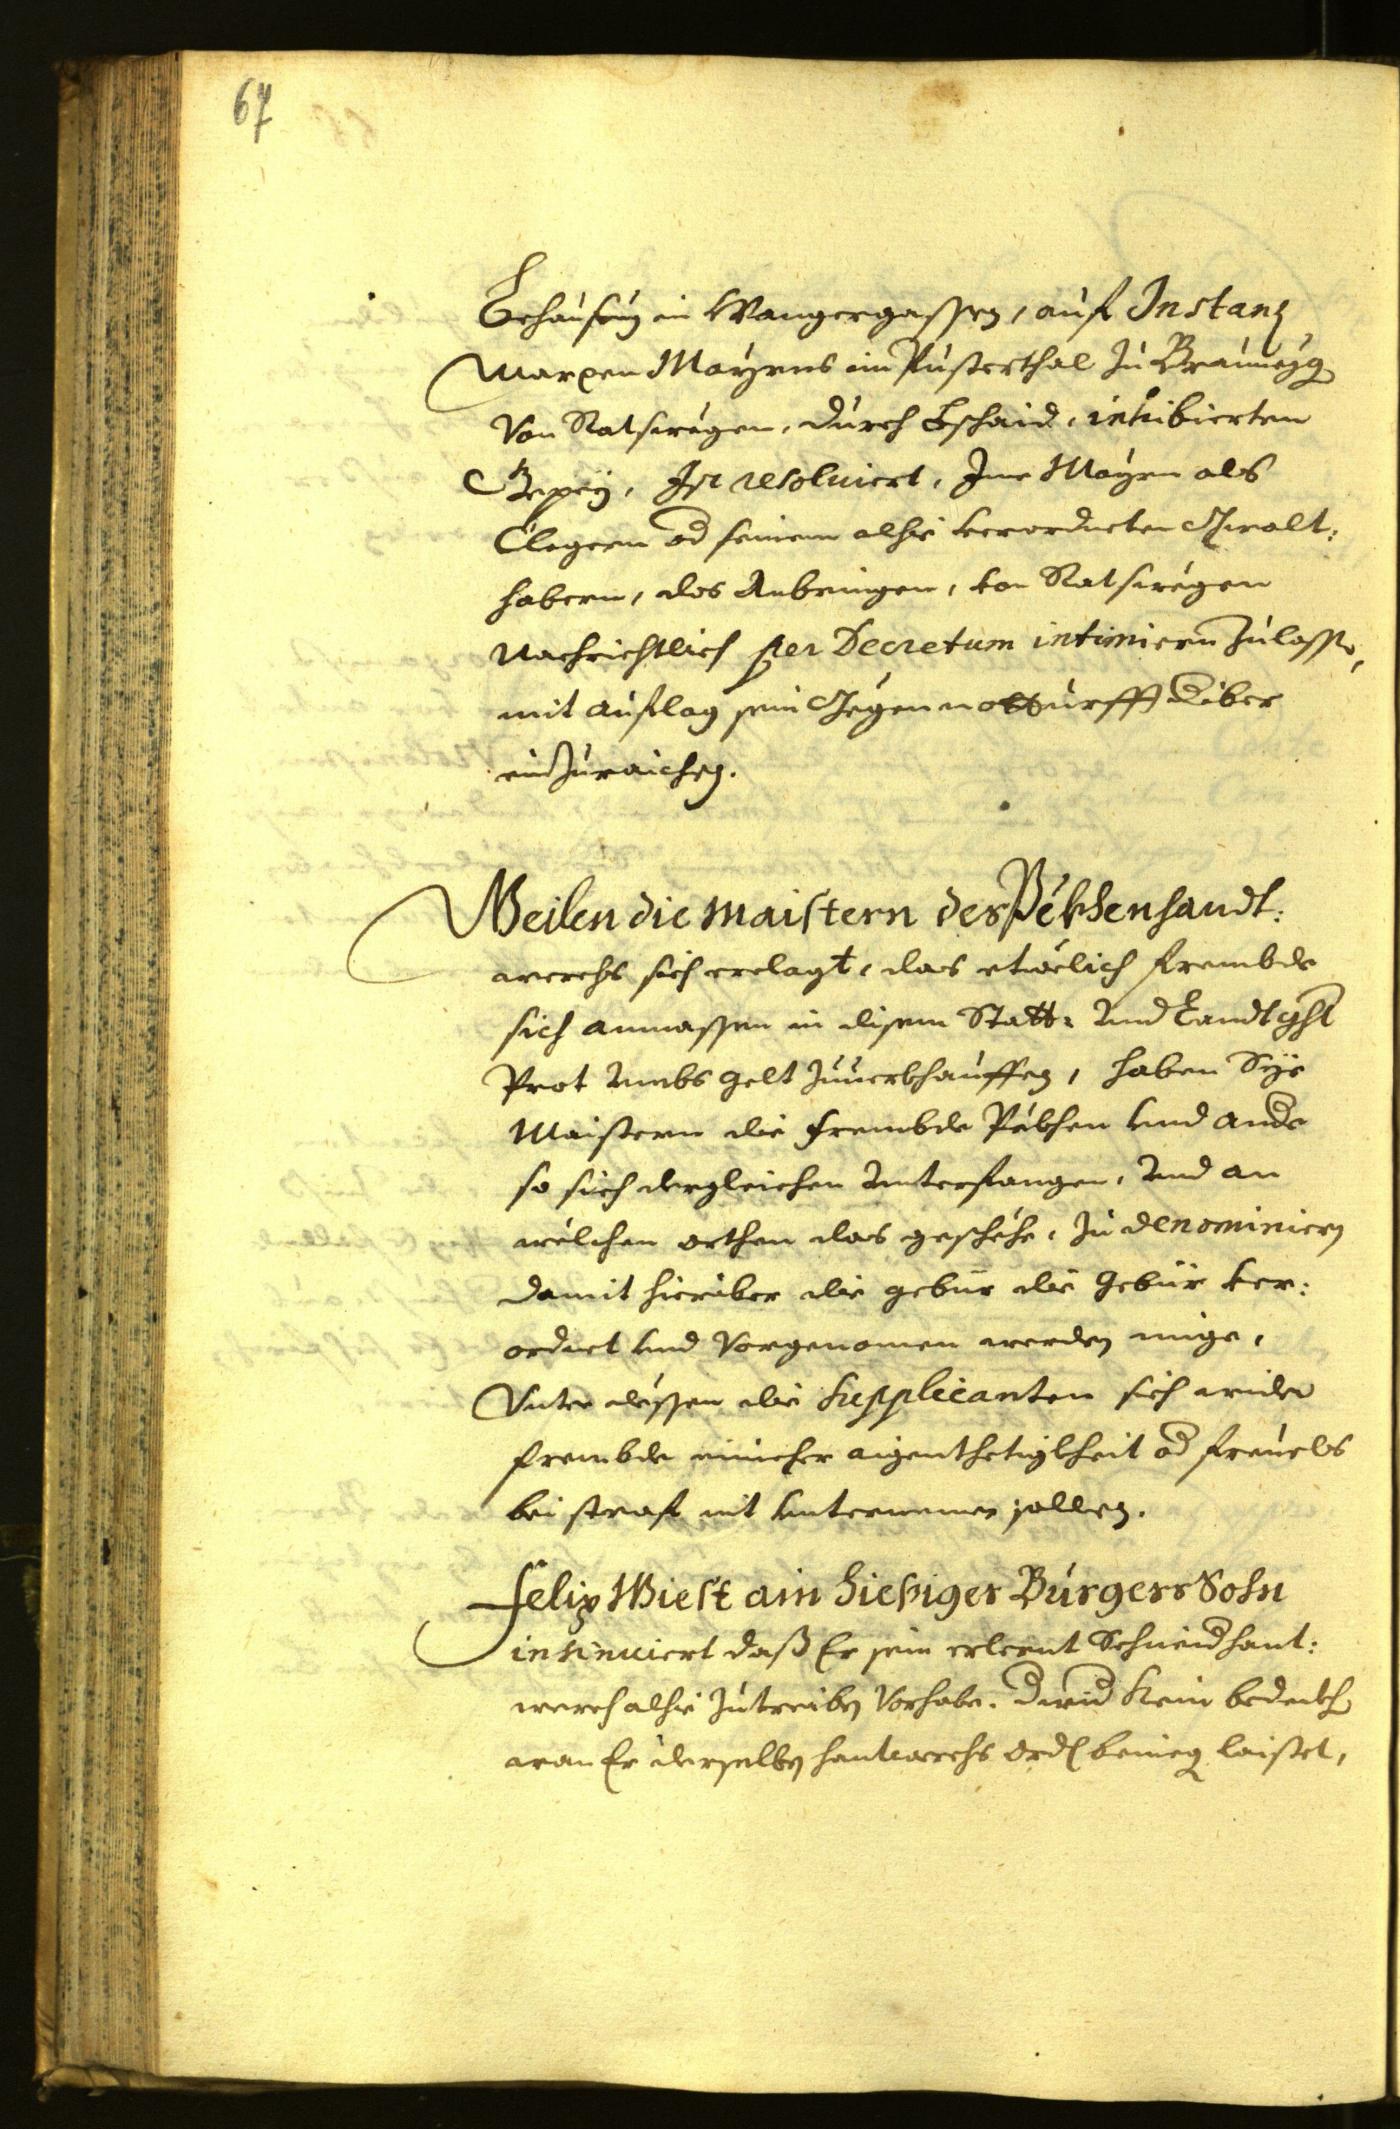 67
Behausung in Wangergassen, auf Instanz
Marxen Mayrns im Pusterthal zu Brauneyg
von Ratswegen, durch Bschaid, inhibierten
Gepey, Ist resoluiert, Ime Mayrn als
Clegern od seinem alhie verordneten Gwalt:
habern, das Anbringen, von Ratswegen
nachrichtlich per Decretum intimiern zulassen,
mit auflag sein Gegennotturfft dariber
einzuraichen.
Weilen die maistern des Pékhenhandt:
werchs sich erclagt, das etwelich frembde
sich anmassen in disem Statt: und Landtght
Prot umbs gelt zuuerkhauffen, haben Sye
Maistern die frembde Pékhen und ande
so sich dergleichen unterfangen, und an
welchen orthen das geschehe, zu denominiern
damit hieriber die gebür die gebür ver:
ordnet und vorgenomen werden mige,
Unter dessen die Supplicanten sich wider
frembde einicher aigenthetigkheit od freuels
bei straf nit unternemen sollen.
Felix Wiest ain hiesiger Burgers Sohn
insinuiert daß Er sein erlernt Schneidhant:
werch alhie zutreiben vorhabe. Dwid kein bedenkh
wan Er derselben hantwerchs Ord beniegen laistet,